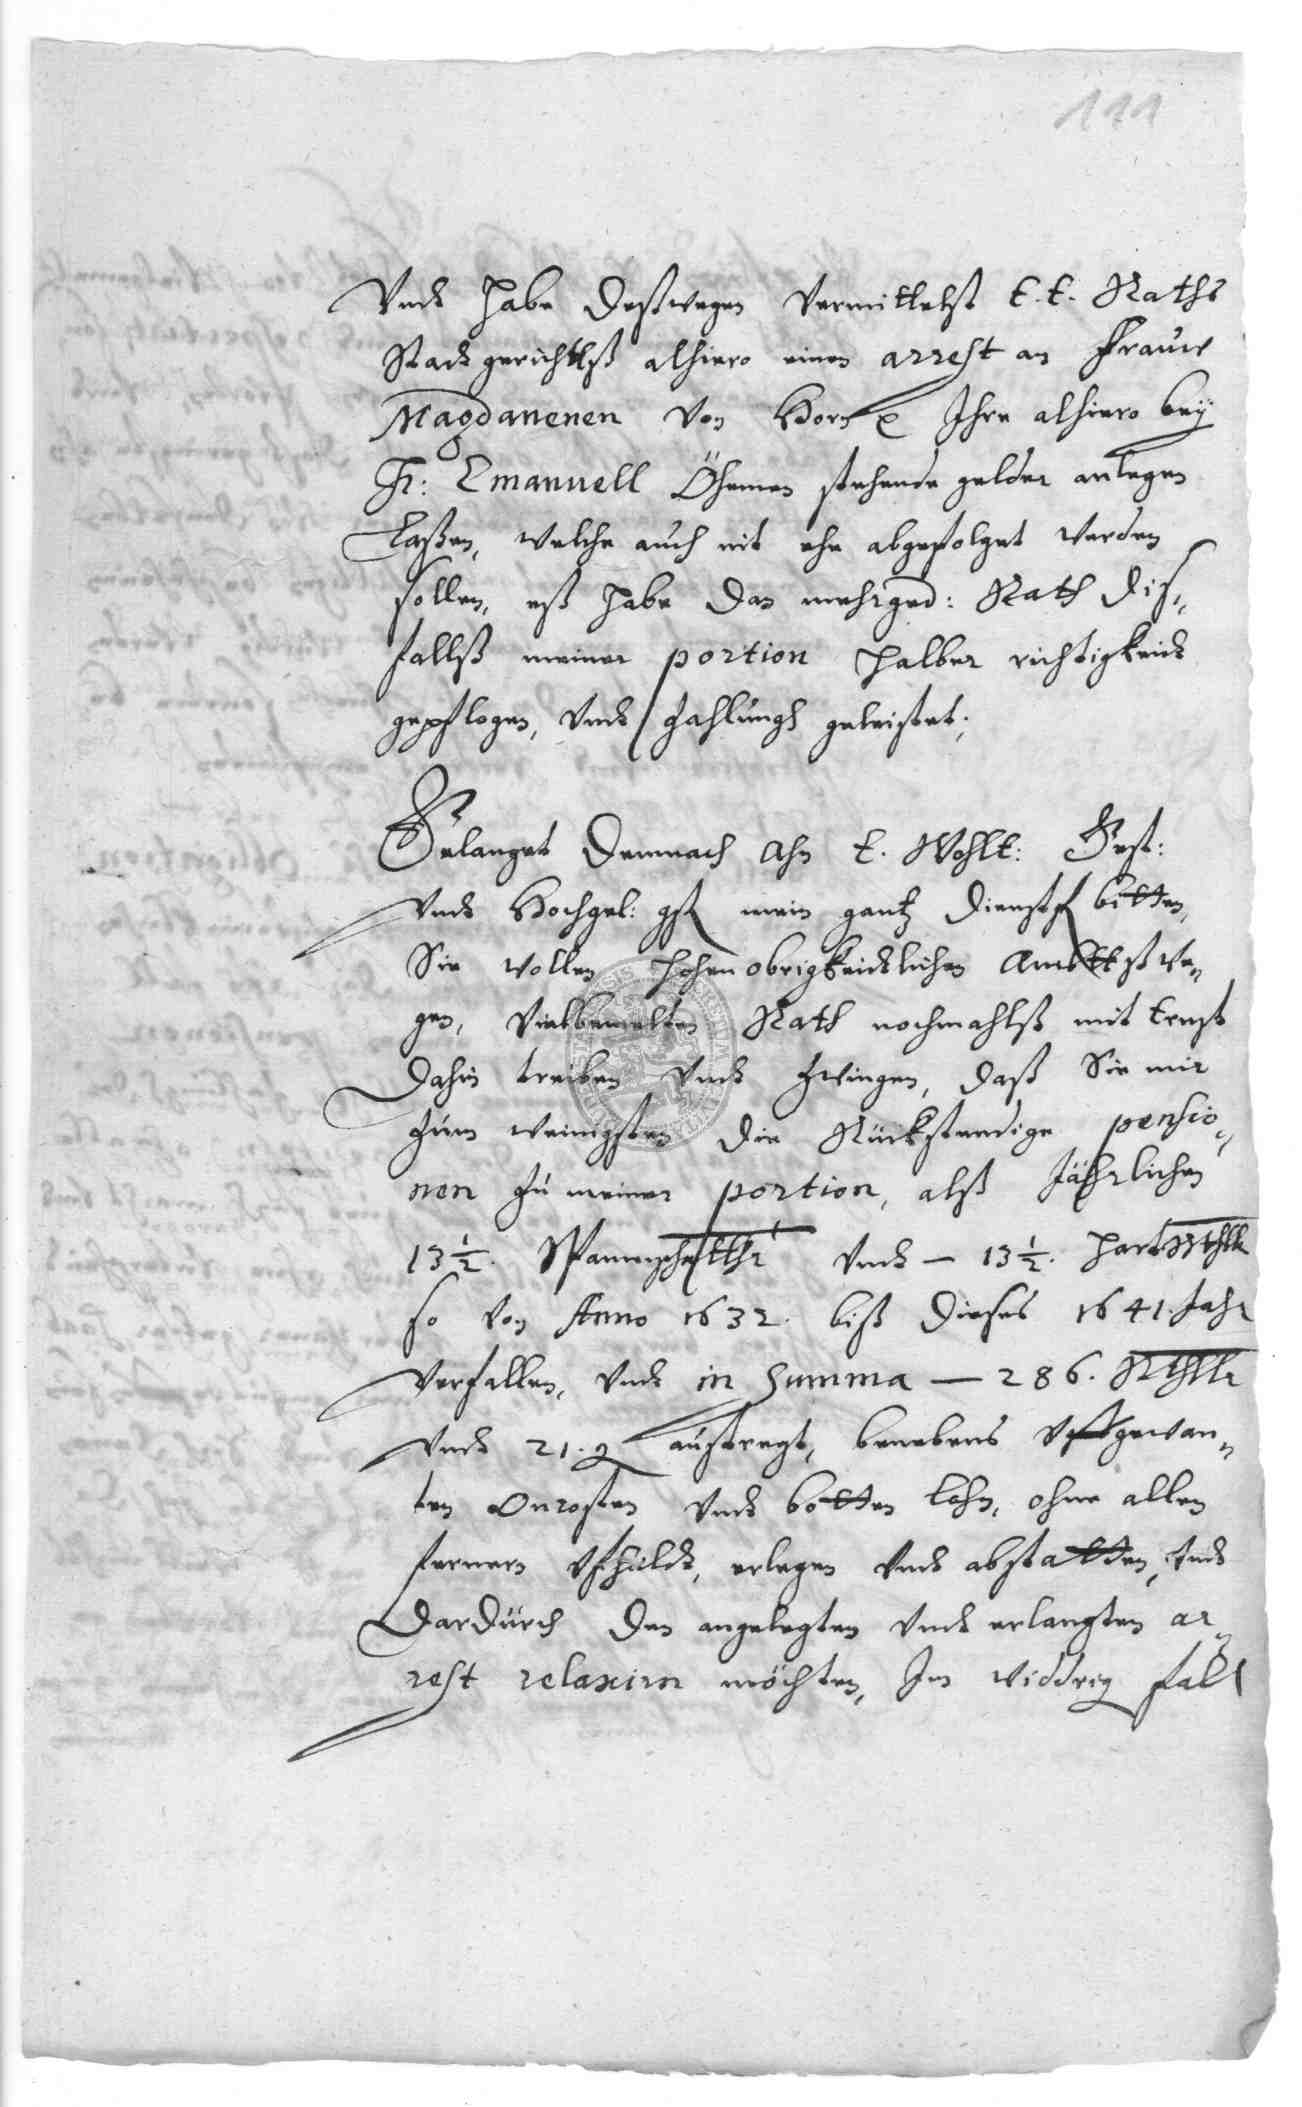 111
Vnd habe deßwegen vermittelst E. E. Raths
Stadtgerichtß alhiero einen arrest an Frauw
Magdanenen von Horn Ihre alhiero beÿ
H: Emanuell Öhemen stehende gelder anlegen
Laßen, welche auch nit ehe abgefolget werden
sollen, eß habe dan mehrged: Rath diß„
fallß meiner portion halber richtigkeid
gepflogen, vnd zahlungh geleistet;
Gelanget demnach ahn E. WohlE: Gest:
vnd Hochgel: gst mein gantz dienstl bitten,
Sie wollen hohen obrigkeidlichen Ambttßwe„
gen, vielbemelten Rath nochmahlß mit Ernst
dahin treiben vnd zwingen, daß Sie mir
zum wenigsten die Rückstendige pensio„
nen zu meiner portion, alß Jährlichen
13½. vnd – 13½. hart Rthlr
so von Anno 1632. biß dieses 1641. Jahr
verfallen, vnd in summa – 286. Rthlr
vnd 21. g außtregt, benebens vffgewan„
ten Vncosten vnd botten lohn, ohne allen
fernern vfhald, erlegen vnd abstatten, vnd
dardurch den angelegten vnd erlangten ar„
rest relaxirn möchten, Im widdrig fall